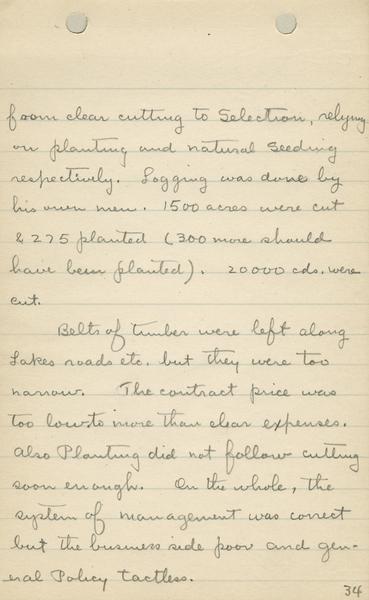 from clear cutting to Selection, relying
on planting and natural seeding
respectively. Logging was done by
his own men. 1500 acres were cut
& 275 planted (300 more should
have been planted). 20000 cds. were
cut.
Belts of timber were left along
Lakes roads etc. but they were too
narrow. The contract price was
too low to more than clear expenses.
Also Planting did not follow cutting
soon enough. On the whole, the
system of management was correct
but the business side poor and gen-
eral Policy tactless.
34